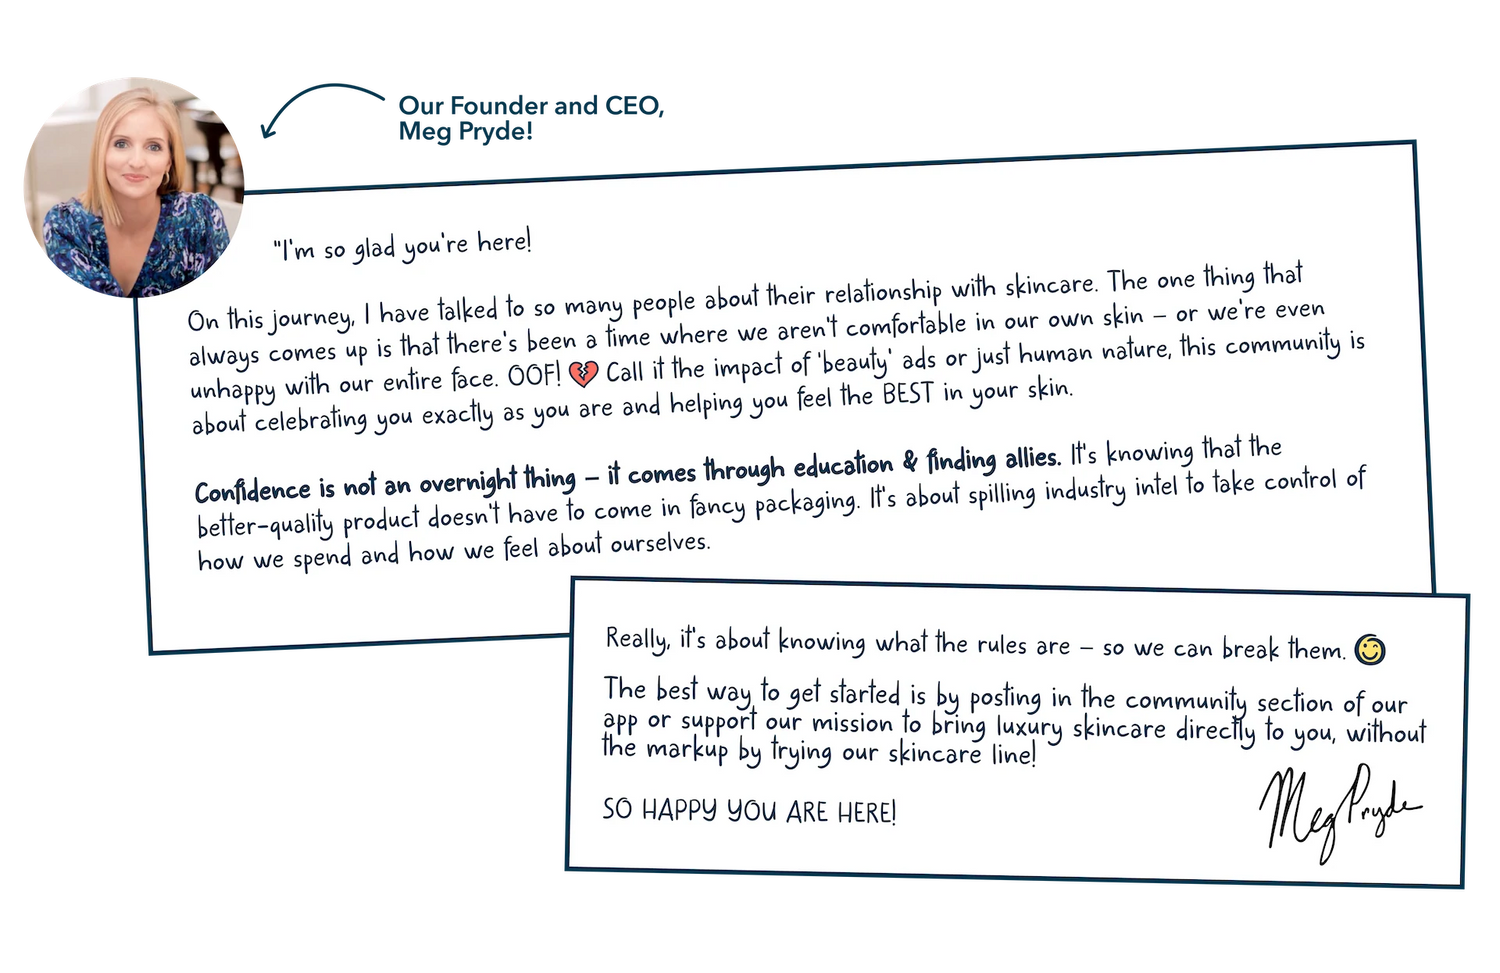 Our Founder and CEO,
Meg Pryde!
"I'm so glad you're here!
On this journey, I have talked to so many people about their relationship with skincare. The one thing that
always comes up is that there's been a time where we aren't comfortable in our own skin – or we're even
unhappy with our entire face. OOF! 💔 Call it the impact of 'beauty' ads or just human nature, this community is
about celebrating you exactly as you are and helping you feel the BEST in your skin.
Confidence is not an overnight thing – it comes through education & finding allies. It's knowing that the
better-quality product doesn't have to come in fancy packaging. It's about spilling industry intel to take control of
how we spend and how we feel about ourselves.
Really, it's about knowing what the rules are – so we can break them. 😉
The best way to get started is by posting in the community section of our
app or support our mission to bring luxury skincare directly to you, without
the markup by trying our skincare line!
SO HAPPY YOU ARE HERE!
Meg Pryde